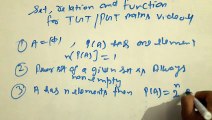 Set, Relation and function
for TGT/PGT maths videos
① A = {ϕ}, P(A) has one element
n[P(A)] = 1
② Power set of a given set is Always
non empty
③ A has n elements then P(A) = 2ⁿ